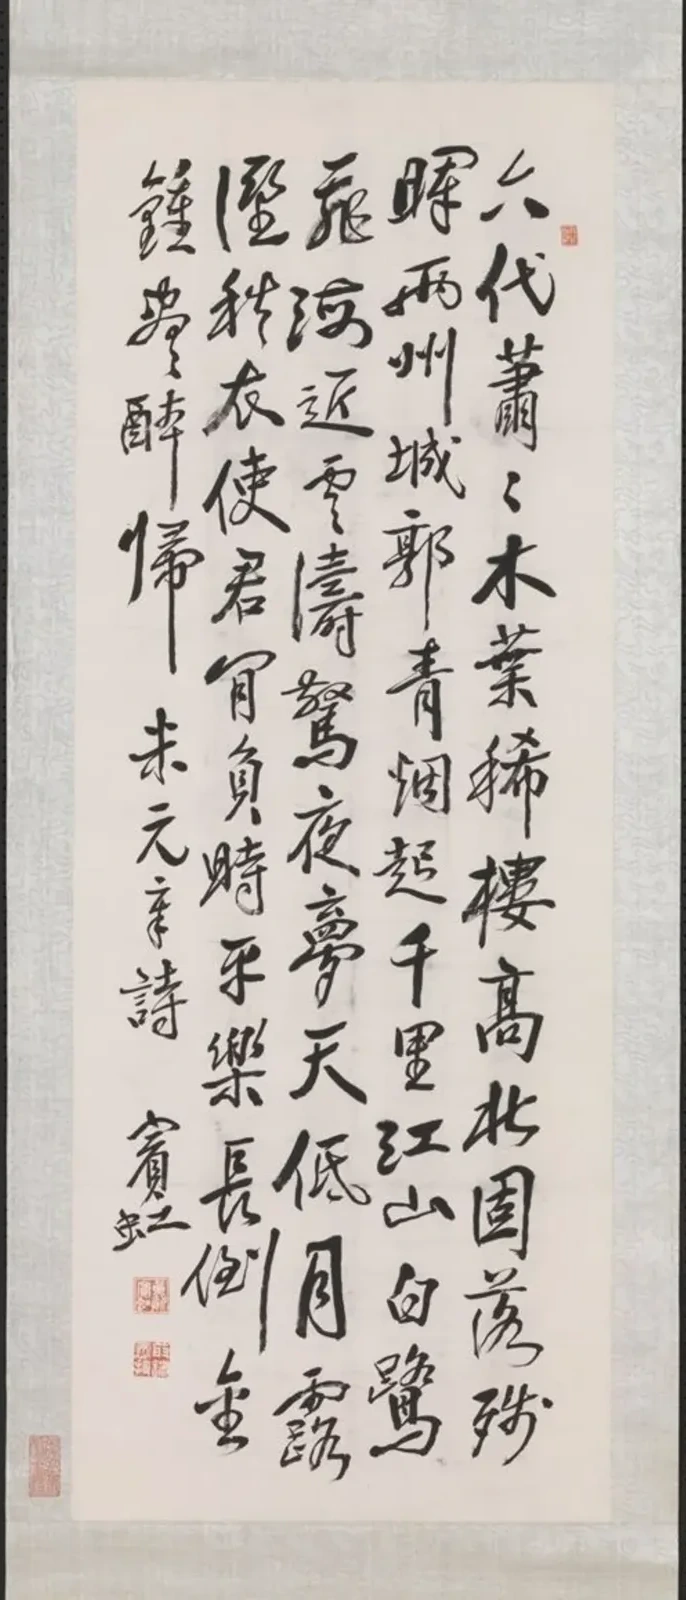 六代蕭〻木葉稀樓高北固落殘
暉兩州城郭青烟起千里江山白鷺
飛海近雲濤驚夜夢天低月露
溼秋衣使君肎負時平樂長倒金
鍾盡醉歸 米元章詩 賓虹